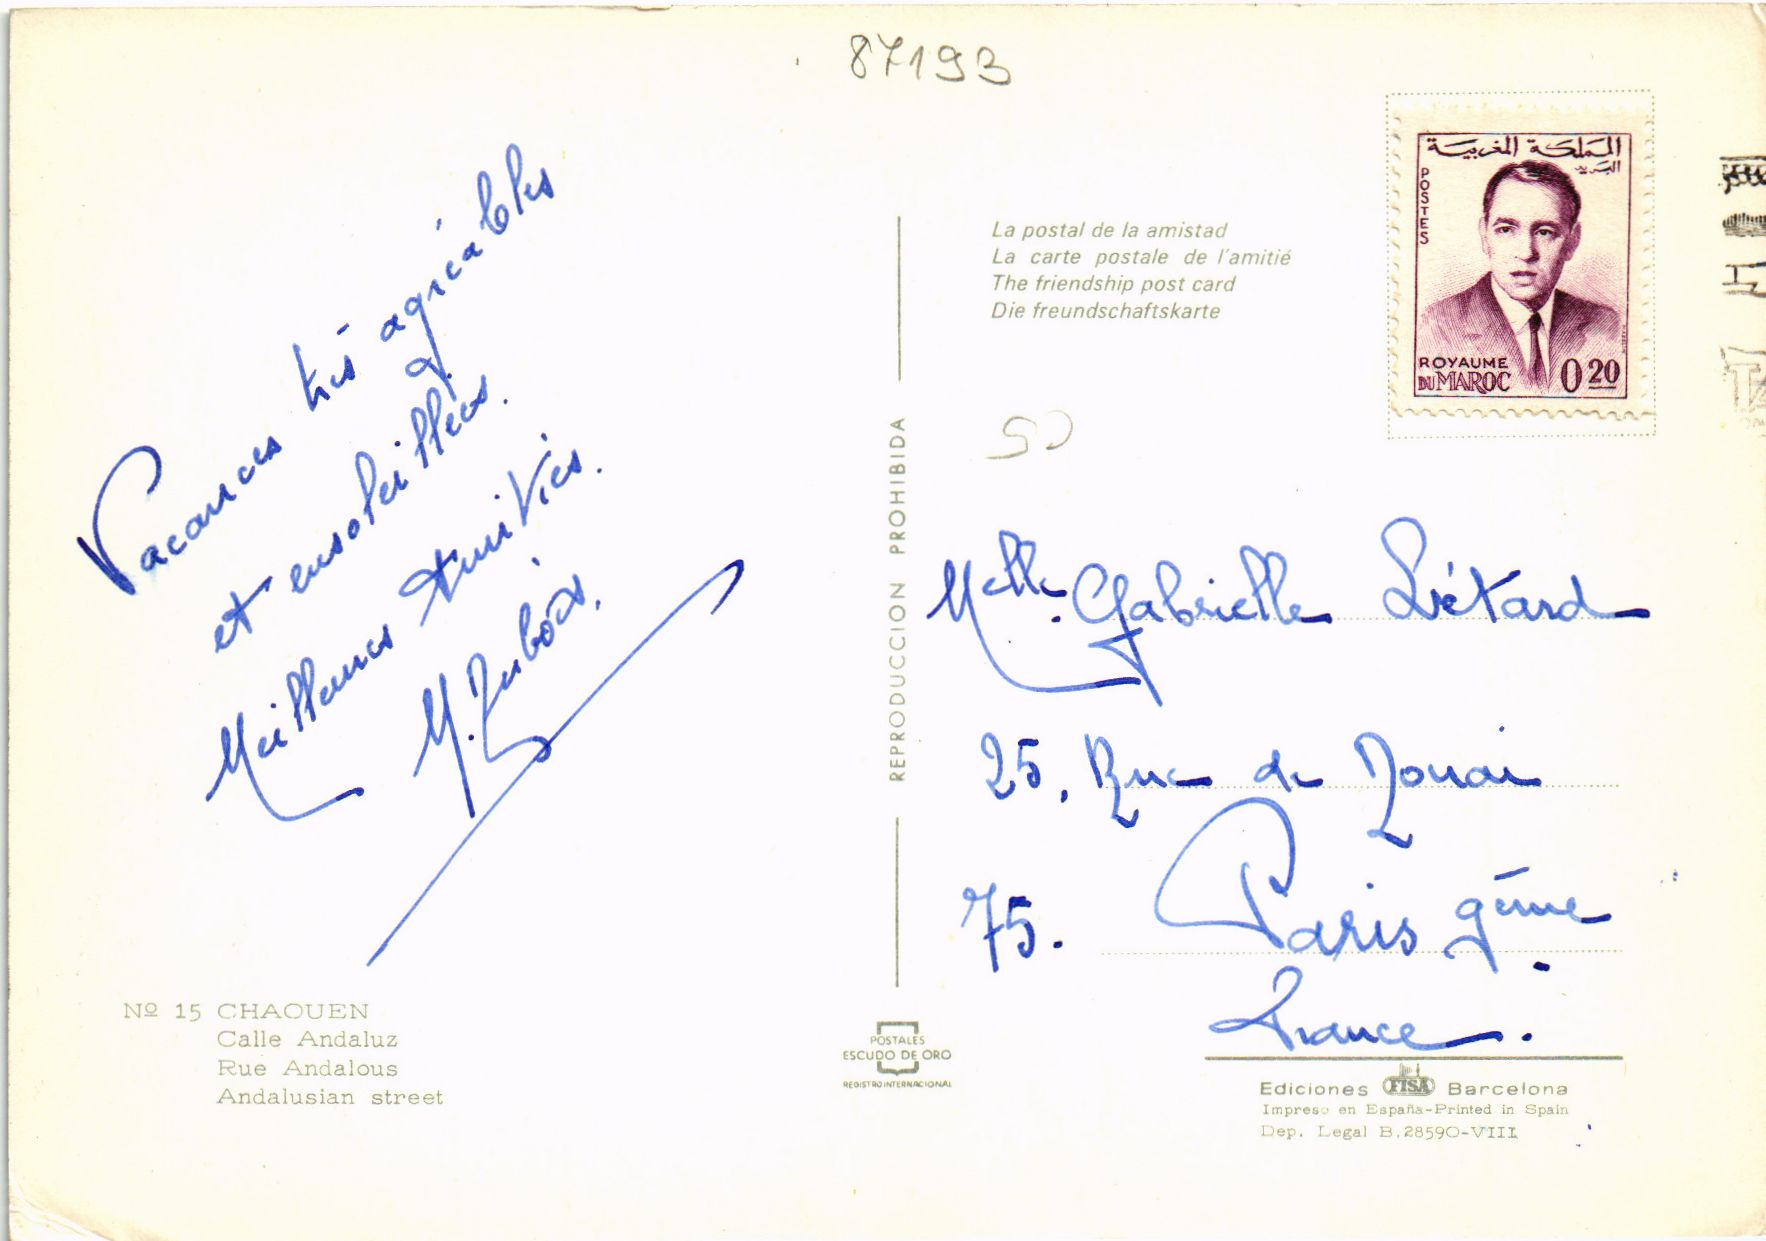 87193
Vacances très agréables
et ensoleillées.
Meilleures Amitiés.
M. Dubois.
Nº 15 CHAOUEN
Calle Andaluz
Rue Andalous
Andalusian street
REPRODUCCION PROHIBIDA
POSTALES
ESCUDO DE ORO
REGISTRO INTERNACIONAL
La postal de la amistad
La carte postale de l'amitié
The friendship post card
Die freundschaftskarte
المملكة المغربية
البريد
POSTES
ROYAUME
DU MAROC
0.20
50
Melle Gabrielle Létard
25, Rue de Douai
75. Paris 9ème
France.
Ediciones FISA Barcelona
Impreso en España-Printed in Spain
Dep. Legal B.28590-VIII